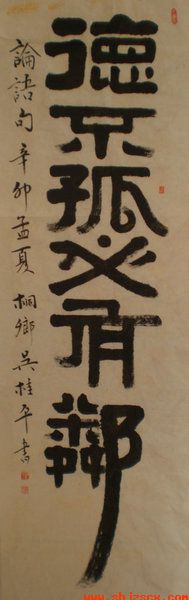 德不孤必有鄰
論語句 辛卯孟夏 桐鄉吳桂平書
www.shjzscx.com